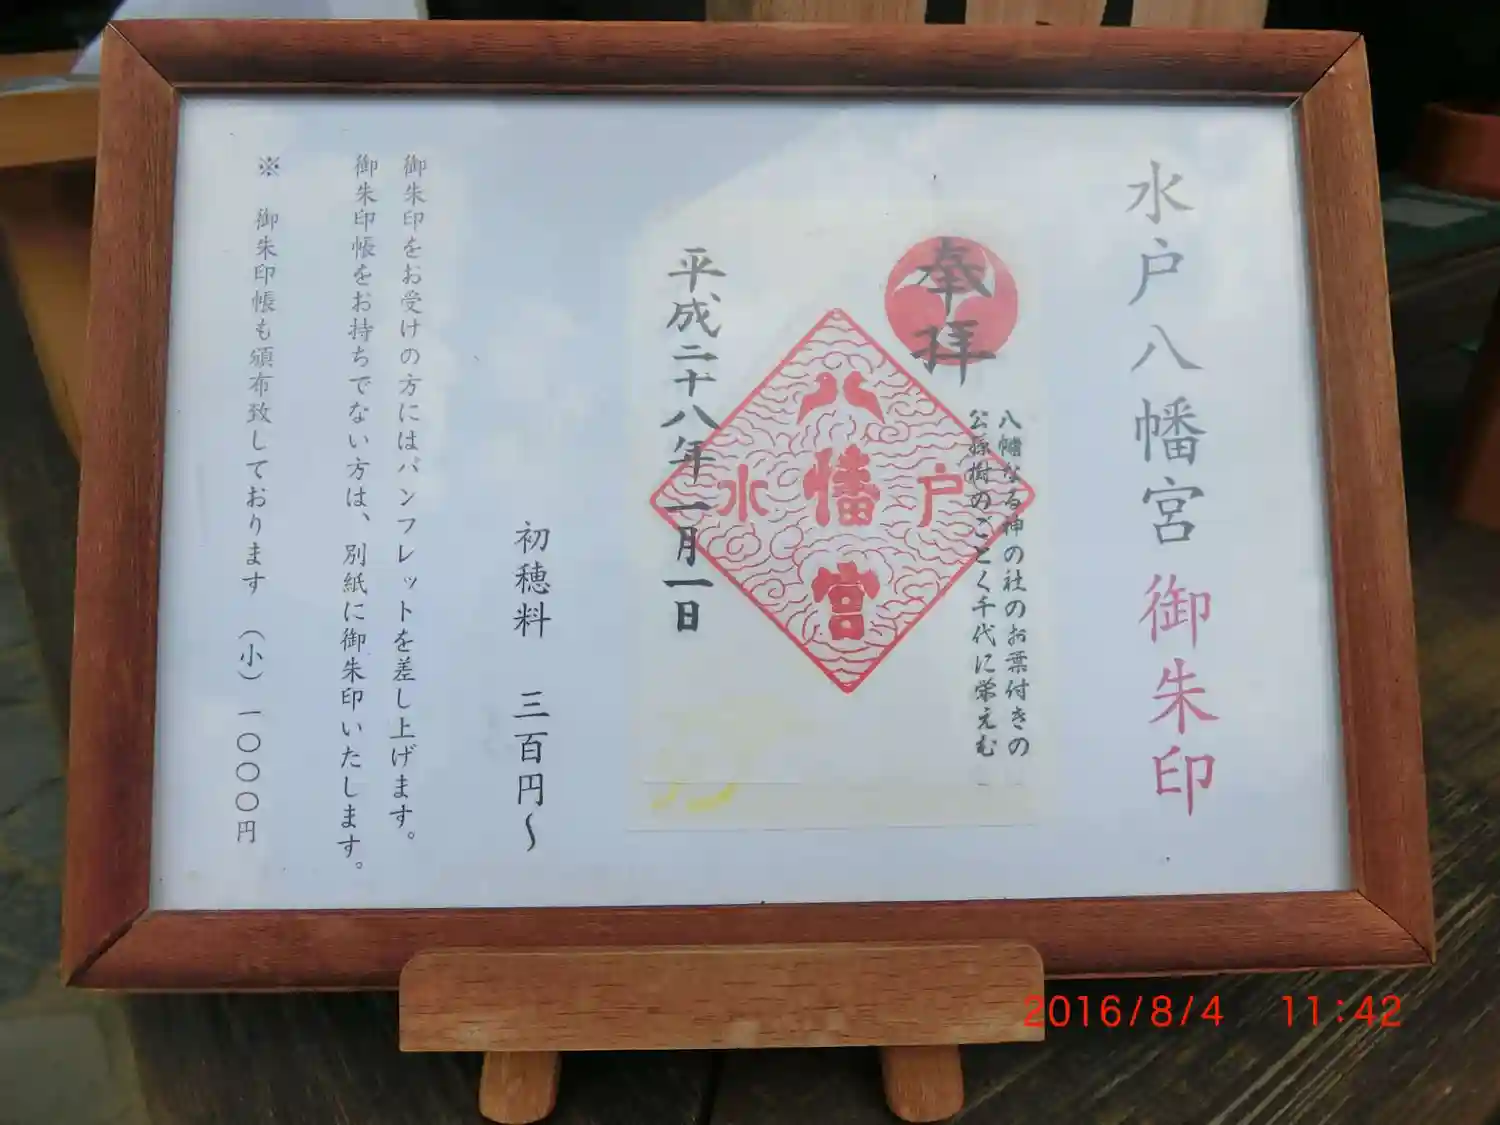 水戸八幡宮 御朱印
奉拝
八幡なる神の社のお葉付きの
公孫樹のごとく千代に栄えむ
八幡宮
水戸
平成二十八年一月一日
初穂料 三百円〜
御朱印をお受けの方にはパンフレットを差し上げます。
御朱印帳をお持ちでない方は、別紙に御朱印いたします。
※ 御朱印帳も頒布致しております (小)一〇〇〇円
2016/8/4 11:42